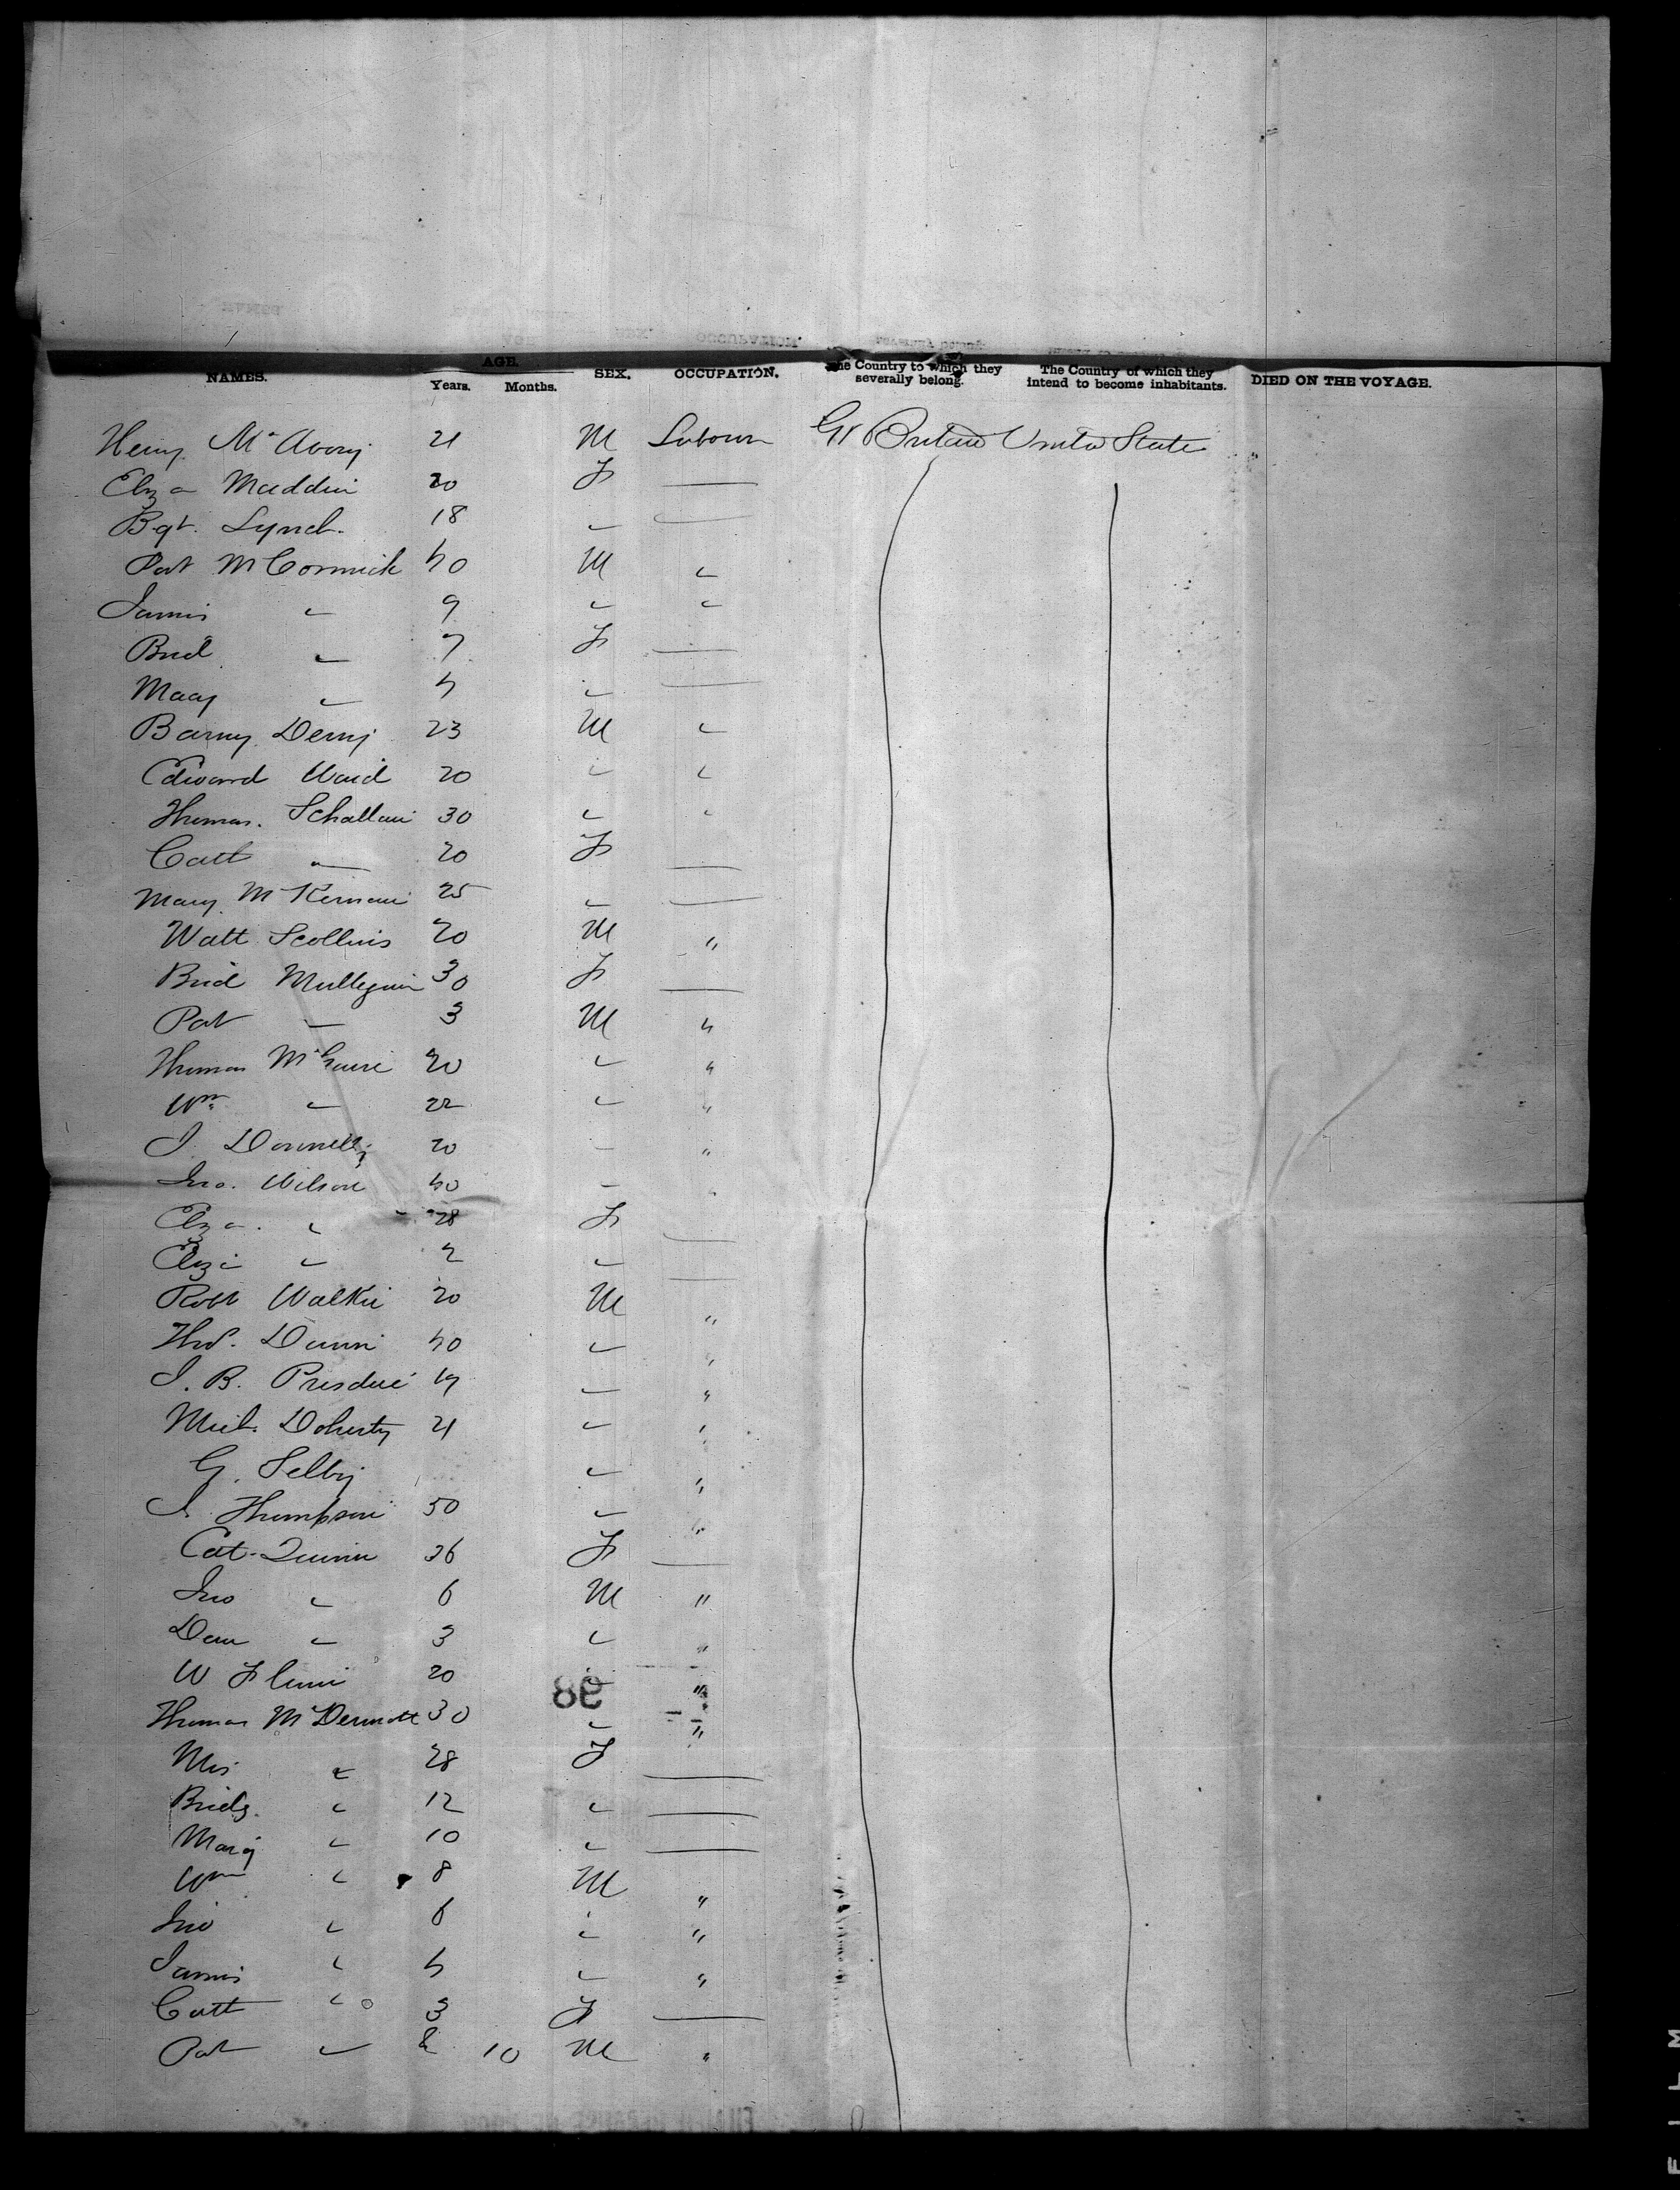 NAMES. AGE. Years. Months. SEX. OCCUPATION. The Country to which they severally belong. The Country of which they intend to become inhabitants. DIED ON THE VOYAGE.
Henry McAvoy 21 M Labourer Gt Britain United States
Eliza Madden 20 F —
Bgt. Lynch 18 " —
Pat McCormick 40 M "
James " 9 " "
Brid " 7 F —
Mary " 4 " —
Barny Derry 23 M "
Edward Ward 20 " "
Thomas 30 " "
Cath " 20 F —
Mary McKernan 25 " —
Watt Scollins 20 M "
Brid Mullegan 30 F —
Pat " 3 M "
Thomas McGuire 20 " "
Wm " 22 " "
J. Donnelly 20 " "
Jno. Wilson 40 " "
Eliza " 28 F —
Eliza " 2 " —
Robt Walker 20 M "
Thos. Dunn 40 " "
J. B. 19 " "
Mich. Doherty 21 " "
G. Selby " "
J. Thompson 50 " "
Cat. Quinn 36 F —
Jno " 6 M "
Dan " 3 " "
W 20 " "
98
Thomas McDermott 30 " "
Mrs " 28 F —
Bridg. " 12 " —
Mary " 10 " —
Wm " 8 M "
Jno " 6 " "
James " 4 " "
Catt " 3 F —
Pat " & 10 M "
FILM